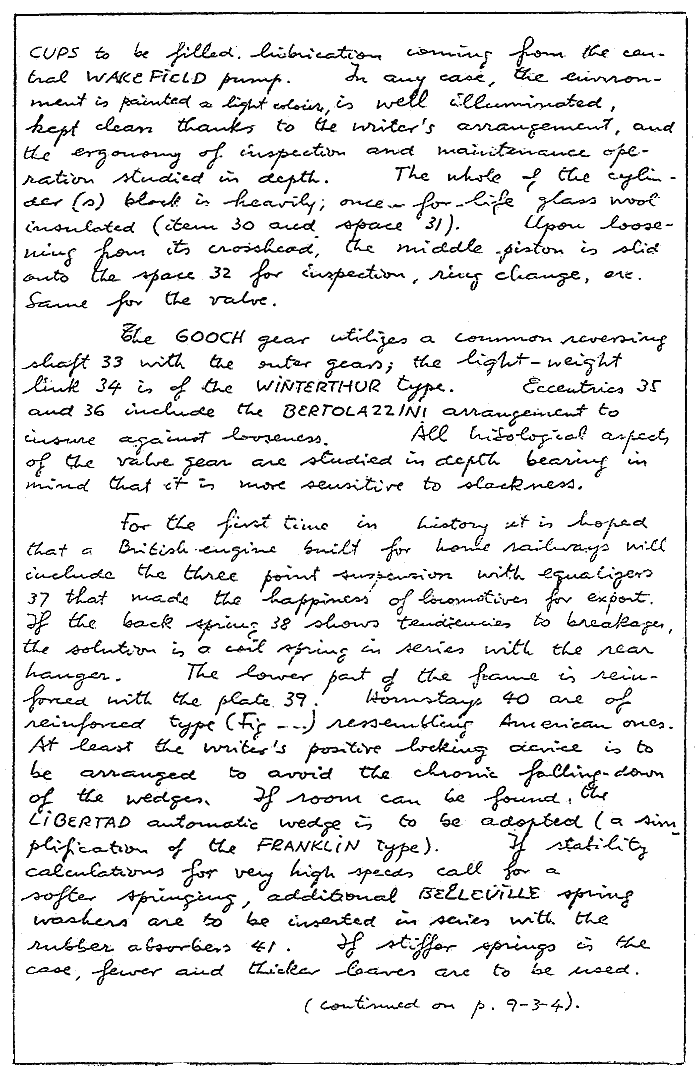 CUPS to be filled. lubrication coming from the cen-
tral WAKEFIELD pump. In any case, the environ-
ment is painted a light colour, is well illuminated,
kept clean thanks to the writer's arrangement, and
the ergonomy of inspection and maintenance ope-
ration studied in depth. The whole of the cylin-
der (s) block is heavily; once-for-life glass wool
insulated (item 30 and space 31). Upon loose-
ning from its crosshead, the middle piston is slid
onto the space 32 for inspection, ring change, etc.
Same for the valve.
The GOOCH gear utilizes a common reversing
shaft 33 with the outer gears; the light-weight
link 34 is of the WINTERTHUR type. Eccentrics 35
and 36 include the BERTOLAZZINI arrangement to
insure against looseness. All aspects
of the valve gear are studied in depth bearing in
mind that it is more sensitive to slackness.
For the first time in history it is hoped
that a British engine built for home railways will
include the three point suspension with equalizers
37 that made the happiness of locomotives for export.
If the back spring 38 shows tendencies to breakages,
the solution is a coil spring in series with the rear
hanger. The lower part of the frame is rein-
forced with the plate 39. Hornstays 40 are of
reinforced type (Fig ---) ressembling American ones.
At least the writer's positive locking device is to
be arranged to avoid the chronic falling-down
of the wedges. If room can be found, the
LIBERTAD automatic wedge is to be adopted (a sim-
plification of the FRANKLIN type). If stability
calculations for very high speeds call for a
softer springing, additional BELLEVILLE spring
washers are to be inserted in series with the
rubber absorbers 41. If stiffer springs is the
case, fewer and thicker leaves are to be used.
(continued on p. 9-3-4).